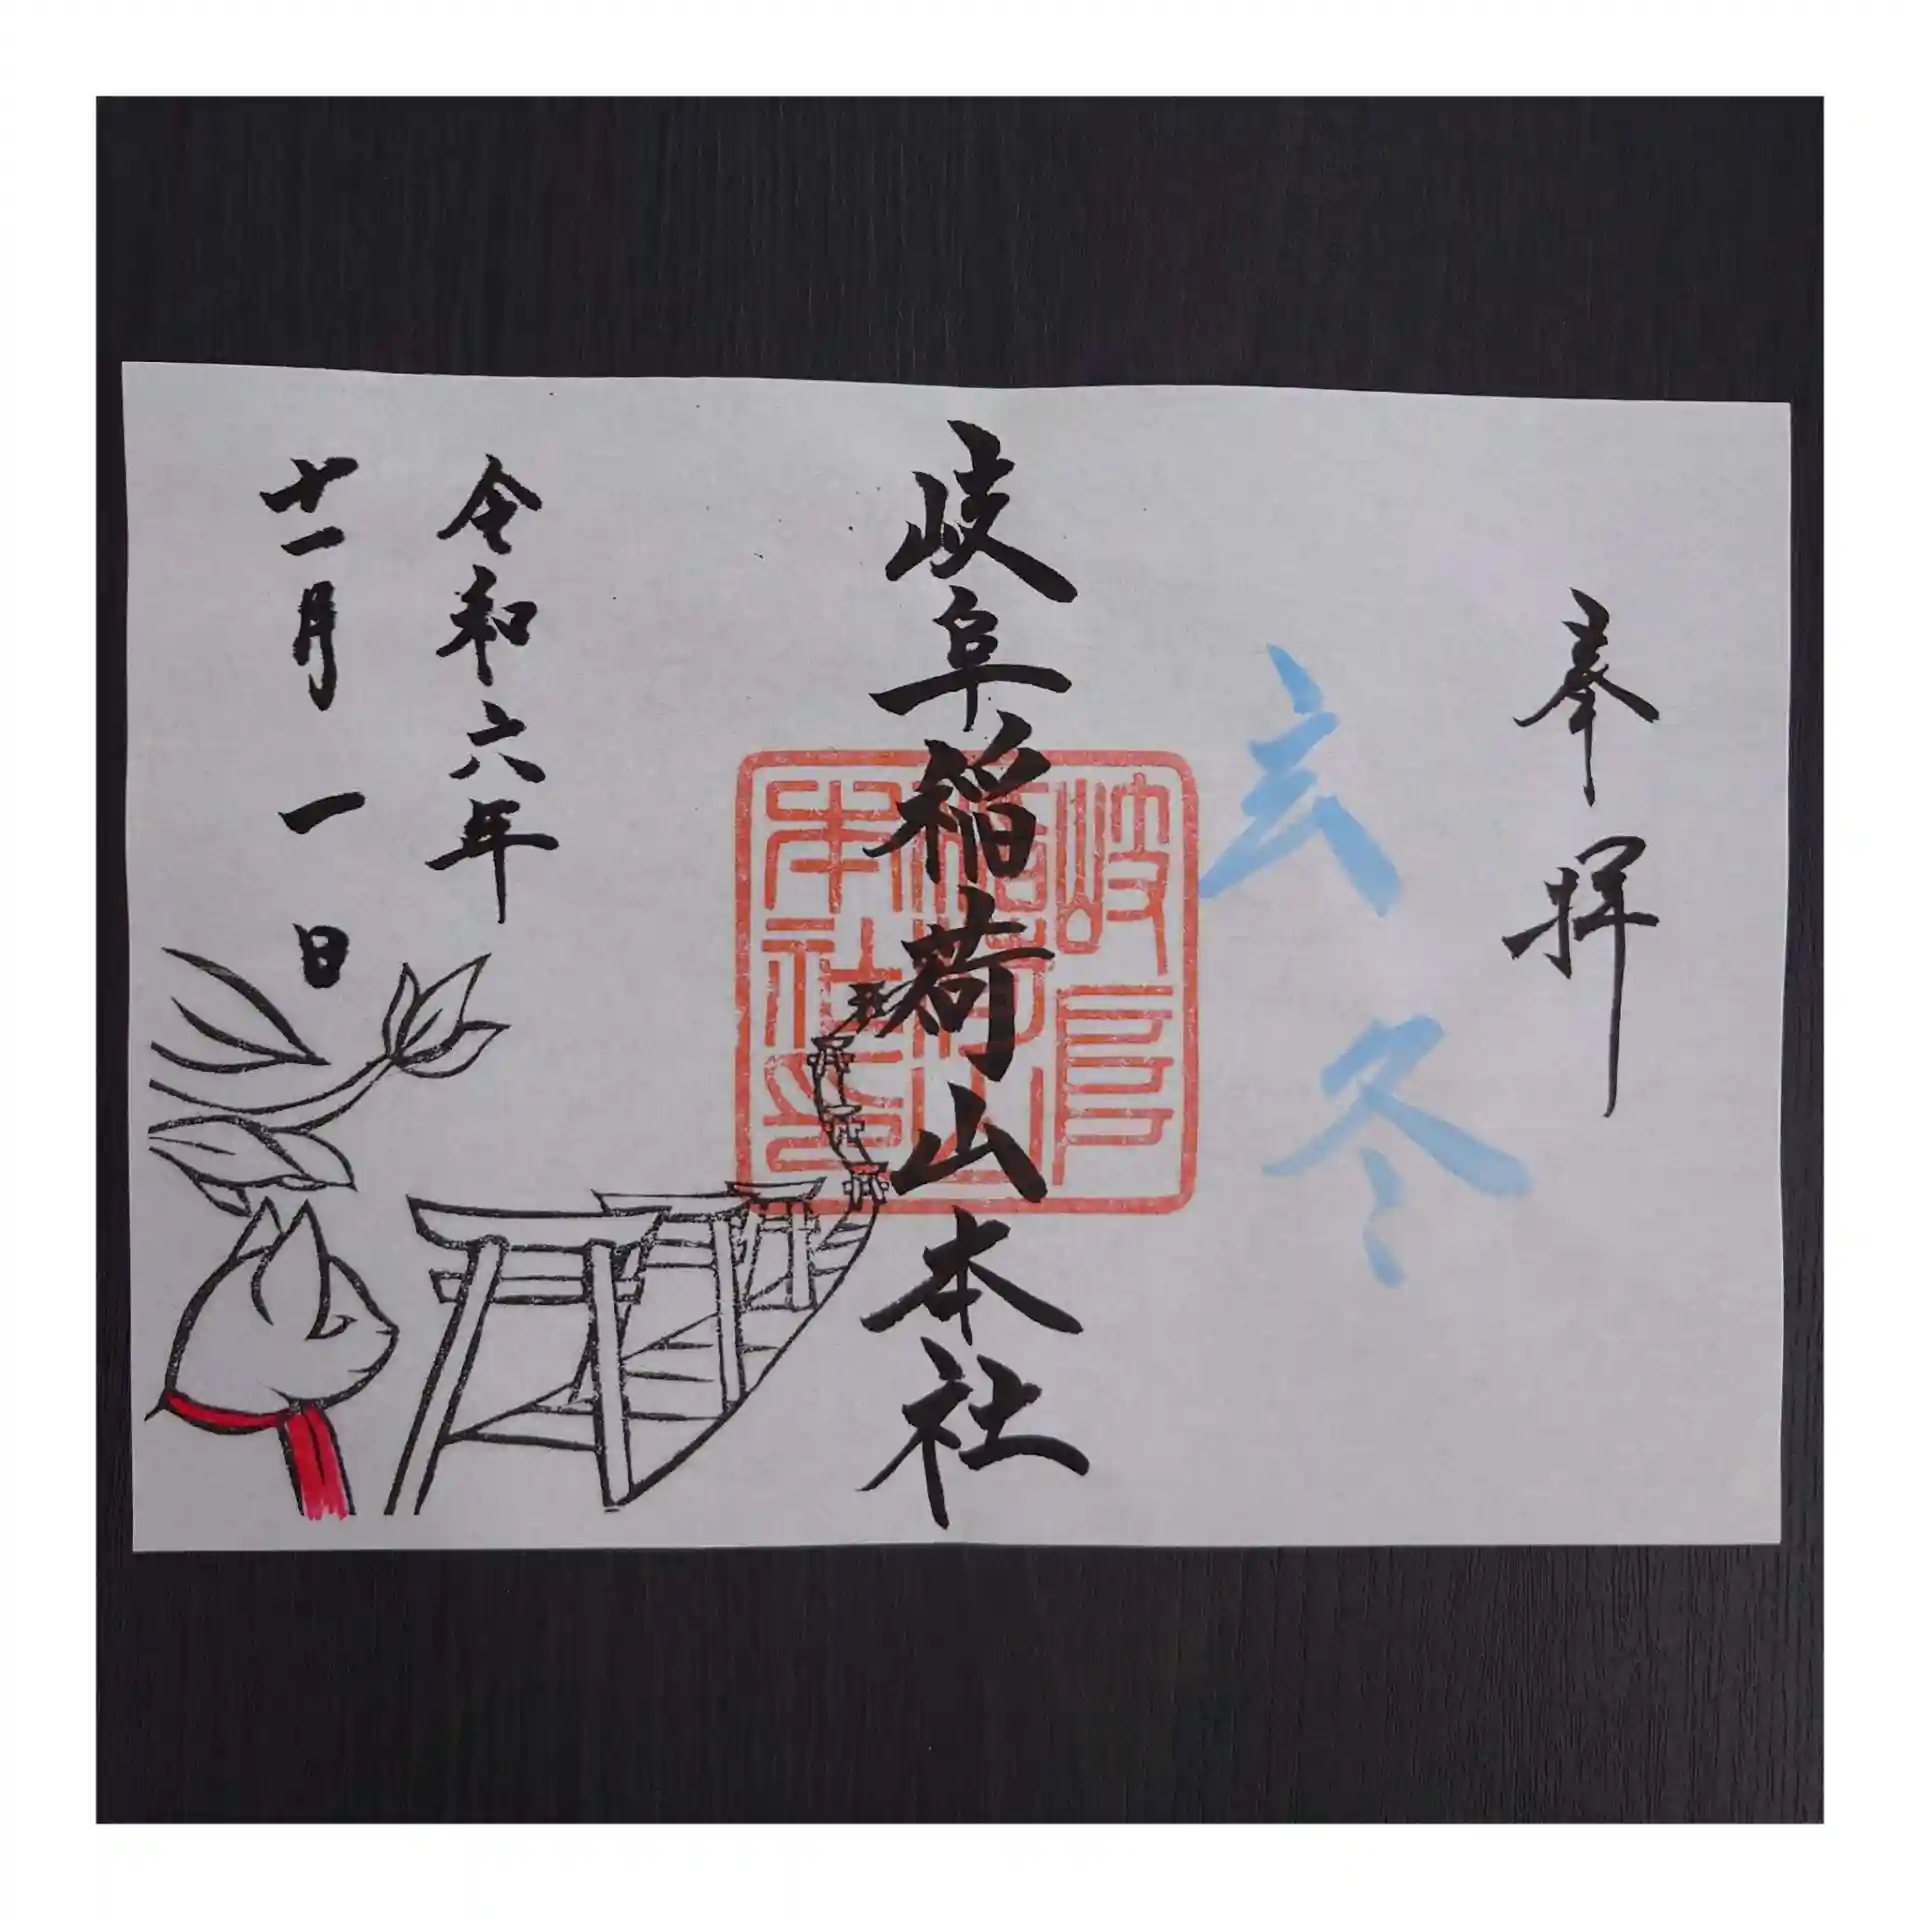 奉拝
玄冬
岐阜稲荷山本社
岐阜
稲荷山
本社之印
令和六年
十一月一日